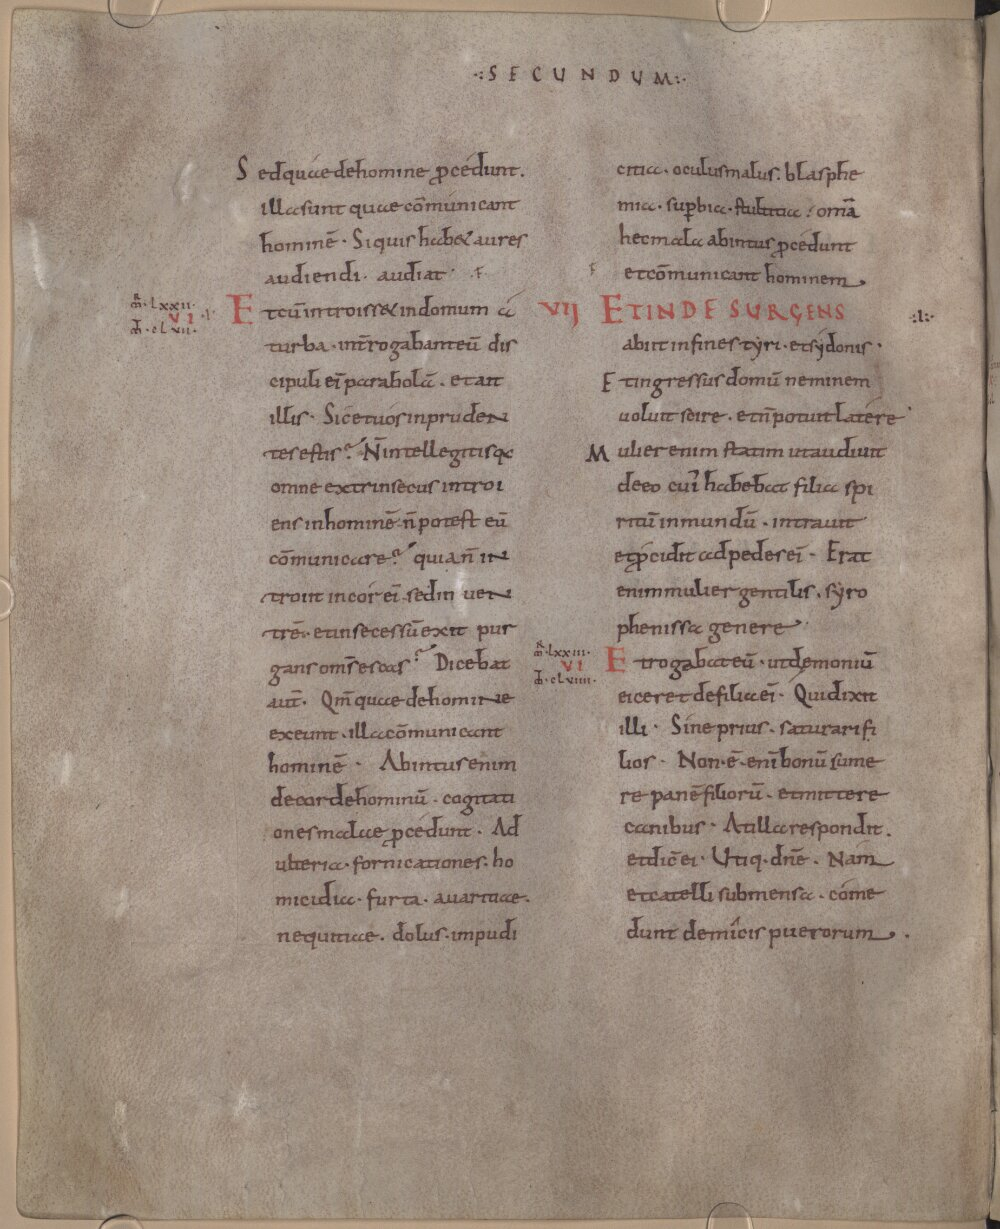 ·:SECUNDUM:·
Sed quae de homine p̄cedunt.
illa sunt quae cōmunicant
hominē · Siquis hab& aures
audiendi · audiat · F
m̄ · lxxii·
VI
m̄ · clvii·
Et cū introiss& in domum a
turba · inťrogabant eū dis
cipuli ei' parabolā · et ait
illis · Sic et uos inpruden
tes estis? N̄ intellegitis q̨
omne extrinsecus introi
ens in hominē n̄ potest eū
cōmunicare? quia n̄ in
troiit in cor ei' sed in uen
trē · et in secessū exiit pur
gans om̄s escas? Dicebat
aut̄ · Qm̄ quae de homine
exeunt · illa cōmunicant
hominē · Ab intus enim
de corde hominū · cogitati
ones malae p̄cedunt · Ad
ulteria · fornicationes · ho
micidia · furta · auaritiae ·
nequitiae · dolus · impudi
citia · oculus malus · blasphe
mia · sup̄bia · stultitia : omīa
hec mala ab intus p̄cedunt
F et cōmunicant hominem,
VII ET INDE SURGENS ·:l:·
abiit in fines tyri · et sydonis ·
Et ingressus domū neminem
uoluit scire · et n̄ potuit latere ·
Mulier enim statim ut audiuit
de eo cui' habebat filia spi
ritū inmundū · intrauit
et p̄cidit ad pedes ei' · Erat
enim mulier gentilis · syro
phenissa genere
m̄ · lxxiii·
VI
m̄ · clviiii·
Et rogabat eū · ut demoniū
eiceret de filia ei' · Qui dixit
illi · Sine prius · saturari fi
lios · Non · ē · enī bonū sume
re panē filiorū · et mittere
canibus · At illa respondit ·
et dic̄ ei · Utiq · dn̄e · Nam
et catelli sub mensa · come
dunt de micis puerorum ·